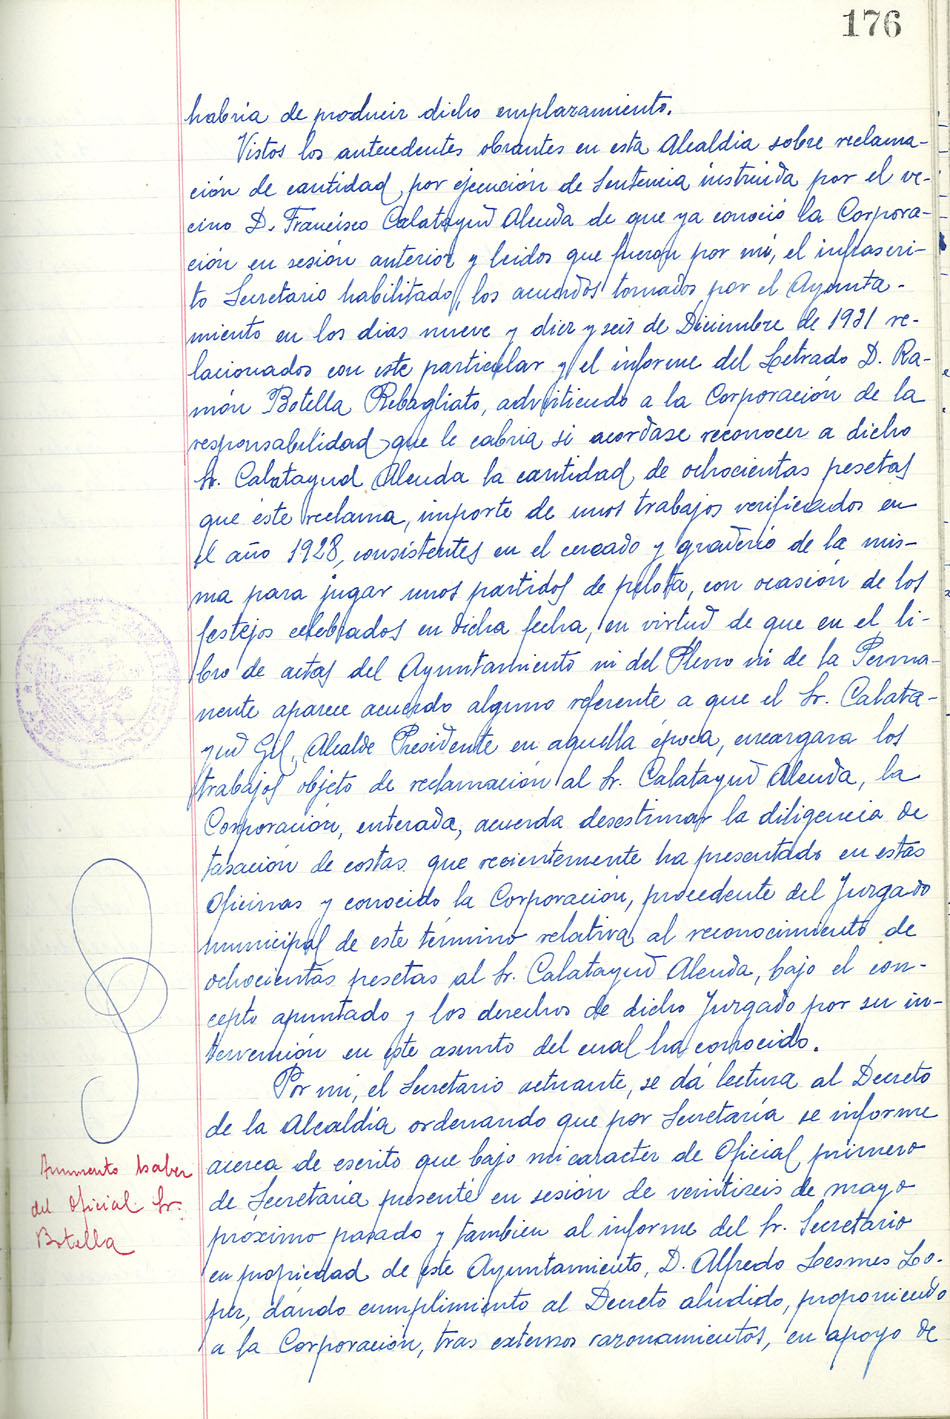 176
habría de producir dicho emplazamiento.
Vistos los antecedentes obrantes en esta Alcaldia sobre reclama-
ción de cantidad por ejecución de Sentencia instruida por el ve-
cino D. Francisco Calatayud Alenda de que ya conoció la Corpora-
ción en sesión anterior y leidos que fueron por mí, el infrascri-
to Secretario habilitado, los acuerdos tomados por el Ayunta-
miento en los dias nueve y diez y seis de Diciembre de 1931 re-
lacionados con este particular y el informe del Letrado D. Ra-
món Botella Rebagliato, advirtiendo a la Corporación de la
responsabilidad que le cabria si acordase reconocer a dicho
Sr. Calatayud Alenda la cantidad de ochocientas pesetas
que éste reclama, importe de unos trabajos verificados en
el año 1928, consistentes en el cercado y graderio de la mis-
ma para jugar unos partidos de pelota, con ocasión de los
festejos celebrados en dicha fecha, en virtud de que en el li-
bro de actas del Ayuntamiento ni del Pleno ni de la Perma-
nente aparece acuerdo alguno referente a que el Sr. Calata-
yud Gil, Alcalde Presidente en aquella época, encargara los
trabajos objeto de reclamación al Sr. Calatayud Alenda, la
Corporación, enterada, acuerda desestimar la diligencia de
tasación de costas que recientemente ha presentado en estas
Oficinas y conocido la Corporación, procedente del Juzgado
municipal de este término relativa al reconocimiento de
ochocientas pesetas al Sr. Calatayud Alenda, bajo el con-
cepto apuntado y los derechos de dicho Juzgado por su in-
tervención en este asunto del cual ha conocido.
Por mí, el Secretario actuante, se dá lectura al Decreto
de la Alcaldía ordenando que por Secretaría se informe
acerca de escrito que bajo mi caracter de Oficial primero
de Secretaría presenté en sesión de veintiseis de mayo
próximo pasado y tambien al informe del Sr. Secretario
en propiedad de este Ayuntamiento, D. Alfredo Lesmes Lo-
pez, dándo cumplimiento al Decreto aludido, proponiendo
a la Corporación, tras extensos razonamientos, en apoyo de
Aumento haber
del Oficial Sr.
Botella